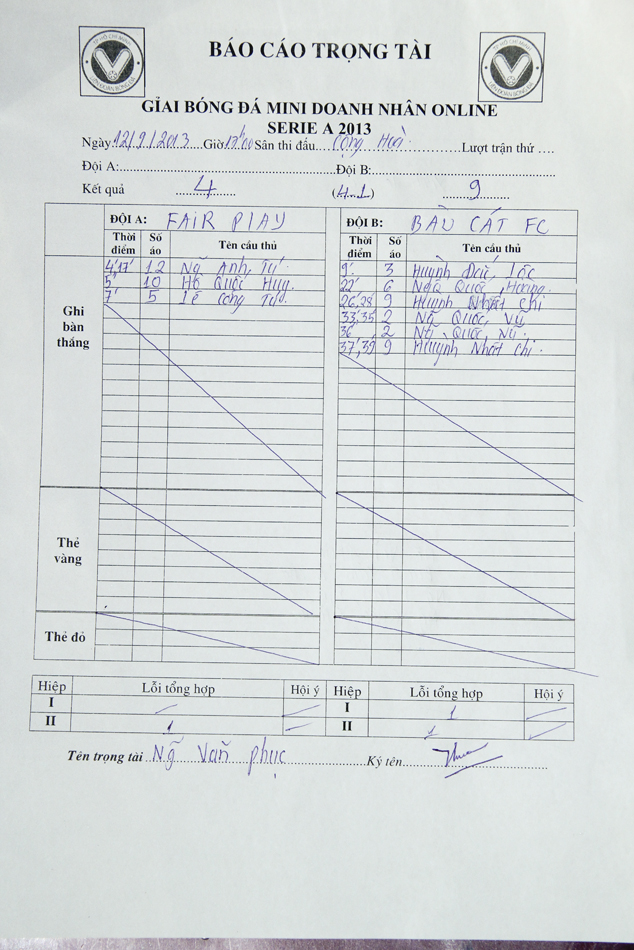 TP HỒ CHÍ MINH
LIÊN ĐOÀN BÓNG ĐÁ
BÁO CÁO TRỌNG TÀI
TP HỒ CHÍ MINH
LIÊN ĐOÀN BÓNG ĐÁ
GIẢI BÓNG ĐÁ MINI DOANH NHÂN ONLINE
SERIE A 2013
Ngày 12/9/2013 Giờ 17h00 Sân thi đấu Cộng Hoà Lượt trận thứ ....
Đội A: Đội B:
Kết quả 4 (4-1) 9
ĐỘI A: FAIR PLAY ĐỘI B: BÀU CÁT FC
Thời điểm Số áo Tên cầu thủ Thời điểm Số áo Tên cầu thủ
Ghi bàn thắng
4',17' 12 Ng Anh Tú 9' 3 Huỳnh Đức Lộc
5' 10 Hồ Quốc Huy 22' 6 Quốc Hương
7' 5 Lê Công Tư 26',28' 9 Huỳnh Nhất Chi
33',35' 2 Ng Quốc Vũ
36' 2 Ng Quốc Vũ
37',39' 9 Huỳnh Nhất Chi
Thẻ vàng
Thẻ đỏ
Hiệp Lỗi tổng hợp Hội ý Hiệp Lỗi tổng hợp Hội ý
I I 1
II 1 II 1
Tên trọng tài Ng Văn Phục Ký tên